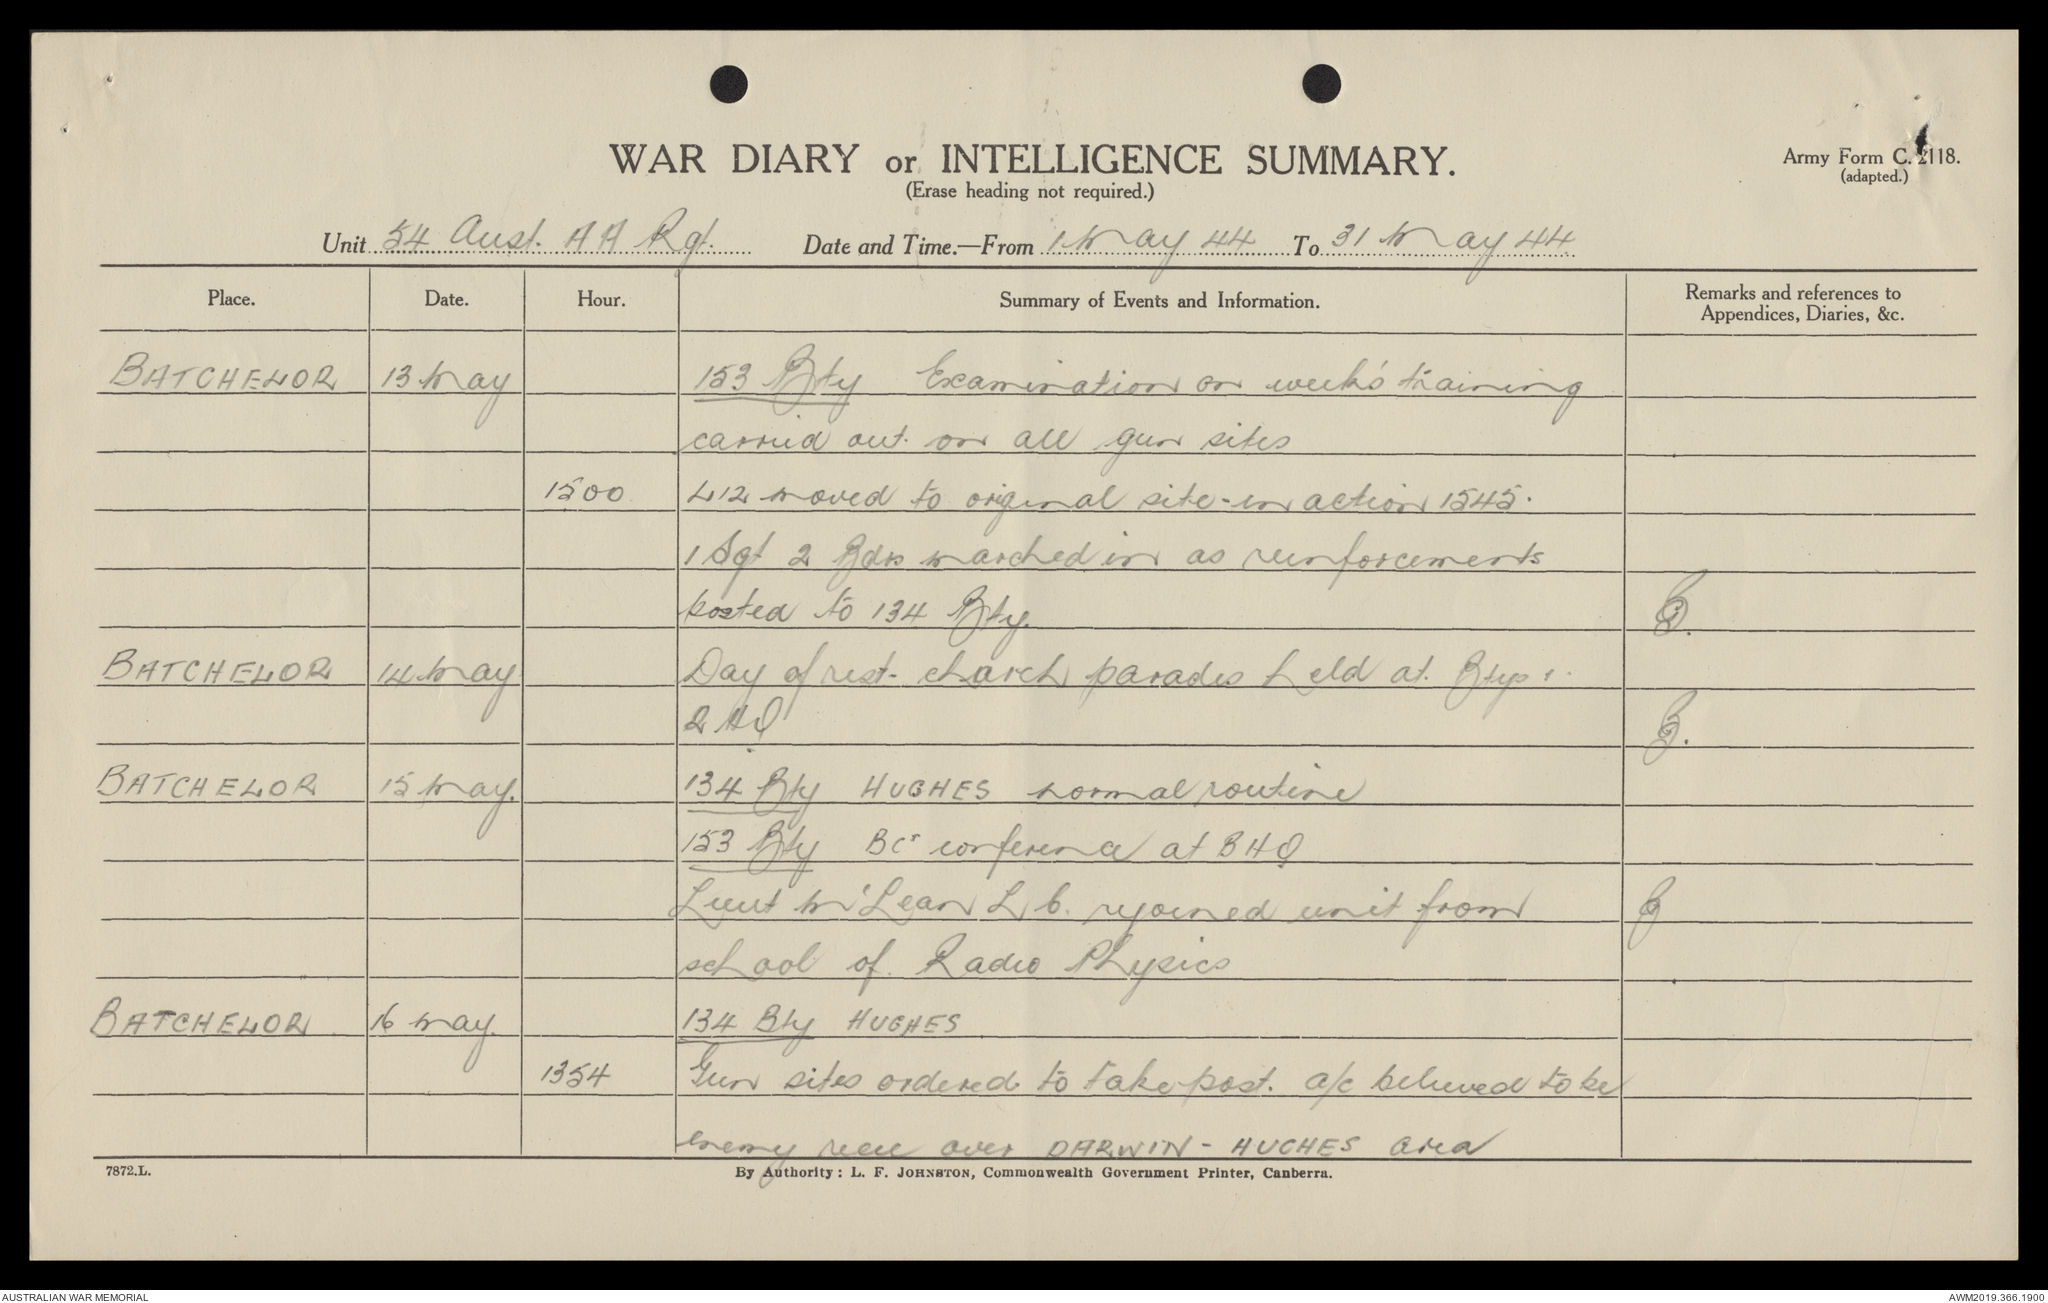 WAR DIARY or INTELLIGENCE SUMMARY.
(Erase heading not required.)
Army Form C. 2118.
(adapted.)
Unit 54 Aust. AA Rgt. Date and Time.—From 1 May 44 To 31 May 44
Place. Date. Hour. Summary of Events and Information. Remarks and references to
Appendices, Diaries, &c.
BATCHELOR 13 May 153 Bty Examination on week's training
carried out on all gun sites
1500 L12 moved to original site - in action 1545.
1 Sgt 2 Bdrs marched in as reinforcements
posted to 134 Bty.
BATCHELOR 14 May Day of rest - church parades held at Btys
HQ
BATCHELOR 15 May. 134 Bty HUGHES normal routine
153 Bty BCs conference at BHQ
Lieut M'Lean L C. rejoined unit from
school of Radio Physics
BATCHELOR 16 May. 134 Bty HUGHES
1354 Gun sites ordered to take post. a/c believed to be
enemy recce over DARWIN - HUGHES area
7872.L.
By Authority: L. F. JOHNSTON, Commonwealth Government Printer, Canberra.
AUSTRALIAN WAR MEMORIAL
AWM2019.366.1900